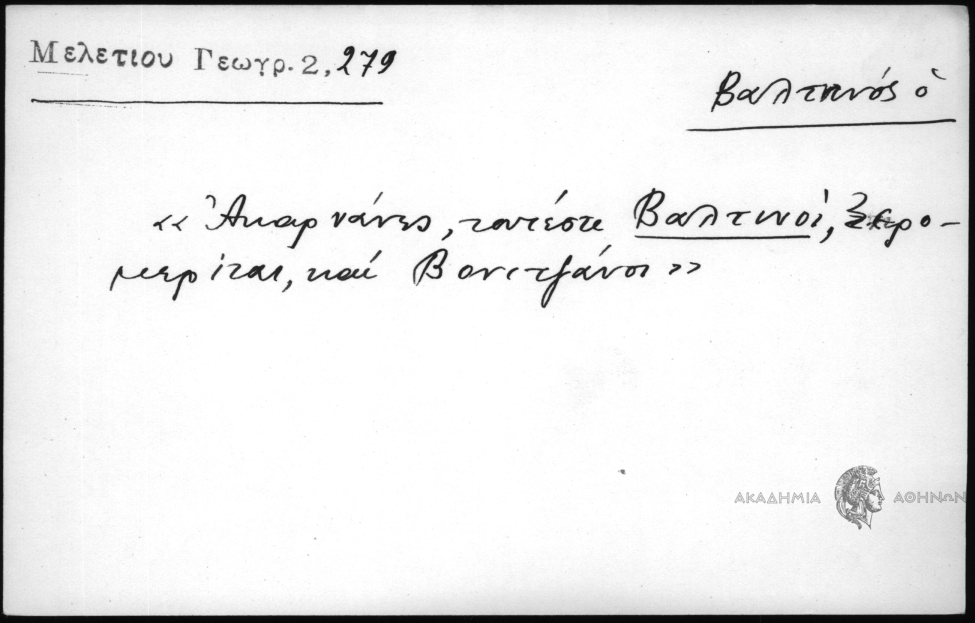 Μελετίου Γεωγρ. 2, 279
Βαλτινός ὁ
«Ἀκαρνάνες, τουτέστι Βαλτινοί, Ξερο-
μερίται, καί Βονιτζάνοι»
ΑΚΑΔΗΜΙΑ ΑΘΗΝΩΝ